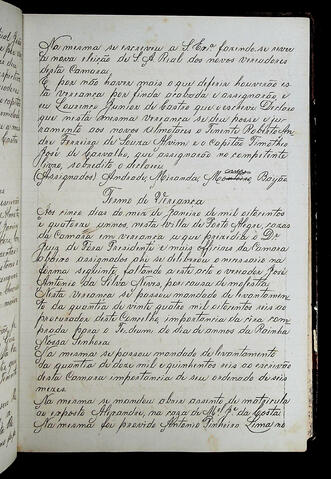 Na mesma se escreveu a S. Exª. fazendo-se nova
a nova eleição de S. A. Rial dos novos vereadores
desta Camara.
E por não haver mais o que deferir houverão es-
ta vereança por finda acabada e assignarão, e
eu Lourenço Junior de Castro que o escrevi. Declaro
que nesta mesma vereança se deu posse e ju-
ramento aos novos Almotares o Tenente Roberto Am-
bre Ferreira de Souza Alvim e o Capitão Timotheo
José de Carvalho, que assignarão no competente
livro, sobredito o declarei.
Assignados) Andrade, Miranda, Bayão
Termo de Vereança
Aos cinco dias do mez de Janeiro de mil e oitocentos
e quatorze annos, nesta villa de Porto Alegre, cazas
da Camara em vereança a que prizidio o Dr.
Juiz de Fora Presidente e mais officiaes da Camara
abaixo assignados ahi se deliberou o nessario na
forma seguinte faltando a este acto o vereador José
Antonio da Silva Neves, por causa de molestia.
Nesta Vereança se passou mandado de levantamen-
to da quantia de vinte quatro mil oitocentos reis ao
procurador deste Concelho importancia da cera com-
prada para o Tedeum do dia de annos da Rainha
Nossa Senhora
Na mesma se passou mandado de levantamento
da quantia de doze mil e quinhentos reis ao escrivão
desta Camara importancia de seu ordenado de seis
mezes.
Na mesma se mandou abrir assento de matricula
ao exposto Alexandre, na caza de Mel. Je. da Costa
Na mesma foi provido Antonio Pinheiro Lima no